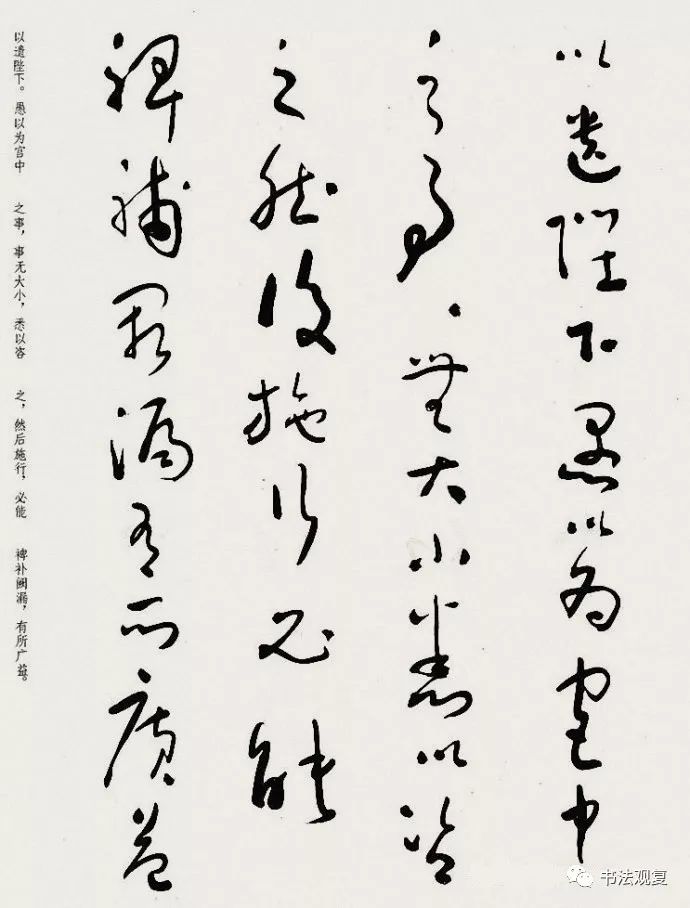 以遺陛下愚以為宮中
之事、無大小悉以諮
之然後施行必能
裨補闕漏有所廣益
以遗陛下。愚以为宫中 之事，事无大小，悉以咨 之，然后施行，必能 裨补阙漏，有所广益。
书法观复